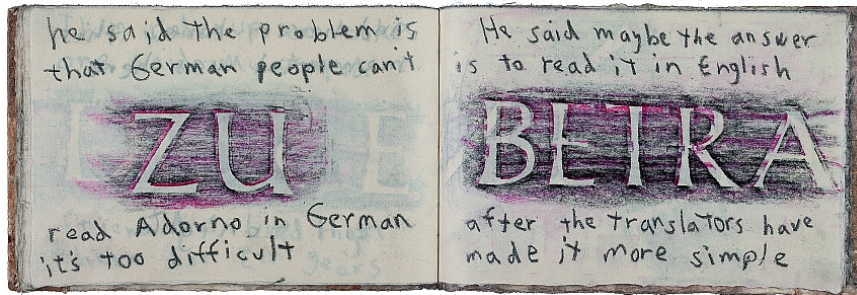 he said the problem is
that German people can't
ZU
read Adorno in German
it's too difficult
He said maybe the answer
is to read it in English
BETRA
after the translators have
made it more simple